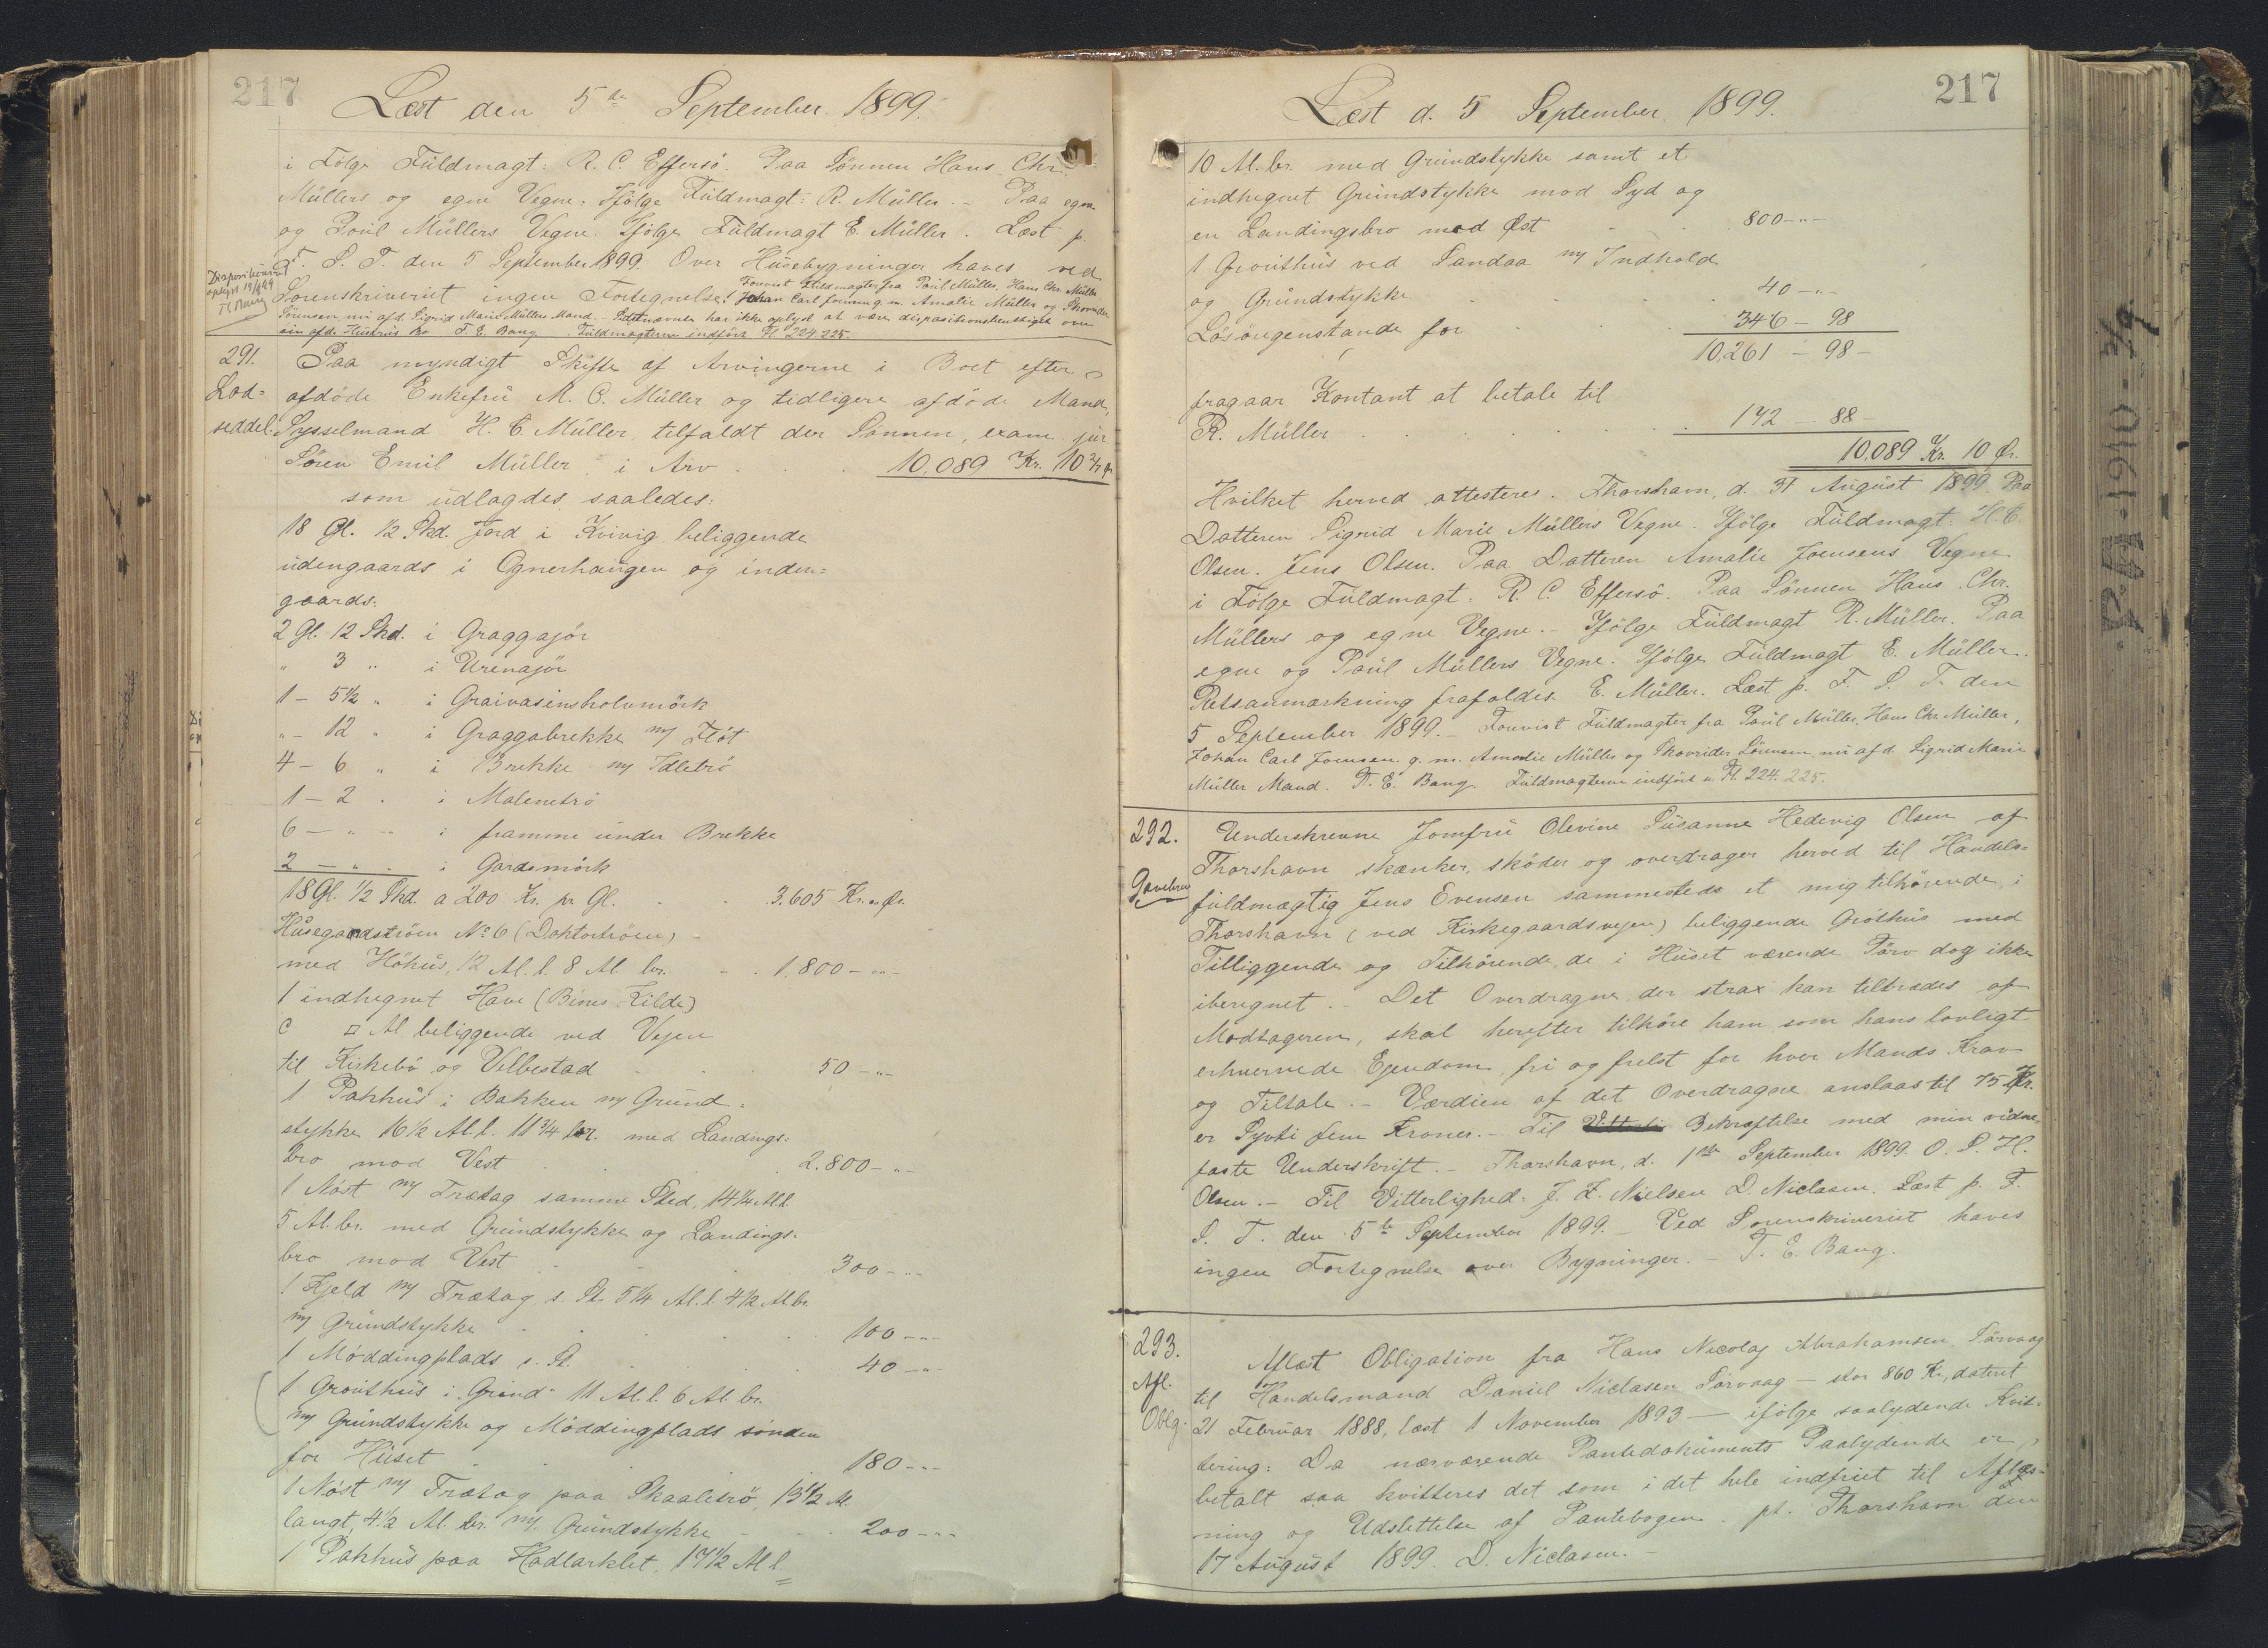 217
Læst den 5te September 1899.
i Følge Fuldmagt: R. C. Effersö. Paa Sönnen Hans Chr.
Müllers og egne Vegne. Ifölge Fuldmagt: R. Müller. - Paa egne
og Poul Müllers Vegne. Ifölge Fuldmagt E. Müller. Læst p.
F. S. T. den 5 September 1899. Over Husebygninger haves ved
Sorenskriveriet ingen Fortegnelse. Forevist Fuldmagter fra Poul Müller, Hans Chr. Müller
Johan Carl Joensen g. m. Amalie Müller og Skovrider
Sörensen nu afd. Sigrid Marie Müllers Mand. - Sidstnævnte har ikke oplyst at være dispositionsberettiget over
sin afd. Hustrus Bo T. E. Bang Fuldmagterne indförte Fl. 224. 225.
Dispositionsret
oplyst 19/9 99
T. E. Bang
291.
Lod=
seddel.
Paa myndigt Skifte af Arvingerne i Boet efter
afdöde Enkefru M. C. Müller og tidligere afdöde Mand,
Sysselmand H. C. Müller, tilfaldt der Sönnen, exam. jur.
Sören Emil Müller i Arv . . . 10,089 Kr. 10 2/7 Ør.
som udlagdes saaledes:
18 Gl. 1/2 Skd. Jord i Kvivig beliggende
udengaards i Ognerhaugen og inden=
gaards:
2 Gl. 12 Skd. i Graggajör
" 3 " i Urenajör
1 - 5 1/2 " i Graivasinsholvmörk
" - 12 " i Graggabrekke m/ Flöt
4 - 6 " i Brekke m/ Idletrö
1 - 2 . i Malenetrö
6 - " - - i framme under Brekke
2 - " . i Gardsmörk
18 Gl. 1/2 Skd. a 200 Kr. pr. Gl. . . 3.605 Kr. " Ør.
Husegaardströen No 6 (Doktortröen)
med Höhus, 12 Al. l. 8 Al. br. - . 1,800 - " -
1 indhegnet Have (Bines Kilde)
C □ Al. beliggende ved Vejen
til Kirkebö og Velbestad . . 50 - " -
1 Pakhus i Bakken m/ Grund=
stykke 16 1/2 Al. l. 11 3/4 br. med Landings=
bro mod Vest . . 2.800 - " -
1 Nöst m/ Trætag samme Sted, 14 1/4 Al. l.
5 Al. br. med Grundstykke og Landings=
bro mod Vest . . 300 - " -
1 Kjeld m/ Trætag s. St. 5 1/4 Al. l. 4 1/2 Al. br.
m/ Grundstykke . . . 100 - " -
1 Möddingplads s. St. . . . 40 - " -
1 Grouthus i "Grind" 11 Al. l. 6 Al. br.
m/ Grundstykke og Möddingplads sönden
for Huset . . . 180 - " -
1 Nöst m/ Trætag paa Skaaletrö, 13 1/2 Al.
langt, 4 1/2 Al. br. m/ Grundstykke - . . 200 - " -
1 Pakhus paa Hodlarklet, 17 1/2 Al. l.
217
Læst d. 5 September 1899.
10 Al. br. med Grundstykke samt et
indhegnet Grundstykke mod Syd og
en Landingsbro mod Øst . . 800 - " -
1 Grouthus ved Sandaa m/ Indhold
og Grundstykke . . . 40 - " -
Lösöregenstande for . . . 346 - 98
10,261 - 98 -
fragaar Kontant at betale til
R. Müller . . . . . 172 - 88 -
10,089 Kr. 10 Ør.
Hvilket herved attesteres. Thorshavn, d. 31 August 1899. Paa
Datteren Sigrid Marie Müllers Vegne. Ifölge Fuldmagt: H. C.
Olsen. Jens Olsen. Paa Datteren Amalie Joensens Vegne
i Følge Fuldmagt. R. C. Effersö. Paa Sönnen Hans Chr.
Müllers og egne Vegne. - Ifölge Fuldmagt R. Müller. Paa
egne og Poul Müllers Vegne. Ifölge Fuldmagt E. Müller.
Retsanmærkning frafaldes. E. Müller. Læst p. F. S. T. den
5 September 1899. - Forevist Fuldmagter fra Poul Müller, Hans Chr. Müller,
Johan Carl Joensen g. m. Amalie Müller og Skovrider Sörensen nu afd. Sigrid Marie
Müller Mand. T. E. Bang. Fuldmagterne indført a. Fl. 224. 225.
292.
Gavebrev
Underskrevne Jomfru Olevine Susanne Hedevig Olsen af
Thorshavn skænker, sköder og overdrager herved til Handels=
fuldmægtig Jens Evensen sammesteds et mig tilhörende, i
Thorshavn (ved Kirkegaardsvejen) beliggende Gröthus med
Tilliggende og Tilhörende, de i Huset værende Törv dog ikke
iberegnet. - Det Overdragne, der strax kan tiltrædes af
Modtageren, skal herefter tilhöre ham som hans lovligt
erhvervede Ejendom, fri og frelst for hver Mands Krav
og Tiltale. - Værdien af det Overdragne anslaas til 75 Kr.
er Syvti fem Kroner. - Til Bekræftelse med min vidne
faste Underskrift. - Thorshavn, d. 1ste September 1899. O. S. H.
Olsen. - Til Vitterlighed: J. Z. Nielsen D. Niclasen. Læst p. F.
S. T. den 5te September 1899. - Ved Sorenskriveriet haves
ingen Fortegnelse over Bygninger. - T. E. Bang.
293.
Afl.
Oblg.
Aflæst Obligation fra Hans Nicolaj Abrahamsen Sörvaag
til Handelsmand Daniel Niclasen Sörvaag - stor 860 Kr., dateret
21 Februar 1888, læst 1 November 1893 - ifölge saalydende Kvit=
tering: Da nærværende Pantedokuments Paalydende er
betalt saa kvitteres det som i det hele indfriet til Aflæs=
ning og Udslettelse af Pantebogen. pt. Thorshavn den
17 August 1899. D. Niclasen. -